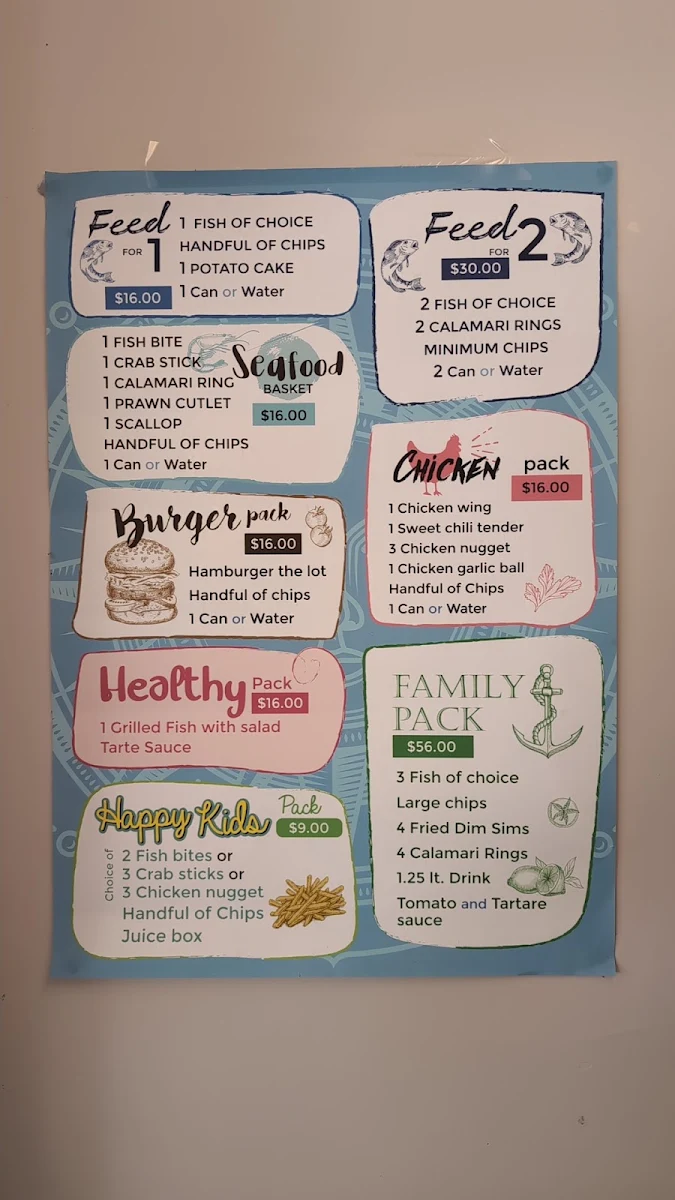 Feed
FOR 1
$16.00
1 FISH OF CHOICE
HANDFUL OF CHIPS
1 POTATO CAKE
1 Can or Water
Feed
FOR 2
$30.00
2 FISH OF CHOICE
2 CALAMARI RINGS
MINIMUM CHIPS
2 Can or Water
1 FISH BITE
1 CRAB STICK
1 CALAMARI RING
1 PRAWN CUTLET
1 SCALLOP
HANDFUL OF CHIPS
1 Can or Water
Seafood
BASKET
$16.00
CHICKEN pack
$16.00
1 Chicken wing
1 Sweet chili tender
3 Chicken nugget
1 Chicken garlic ball
Handful of Chips
1 Can or Water
Burger pack
$16.00
Hamburger the lot
Handful of chips
1 Can or Water
Healthy Pack
$16.00
1 Grilled Fish with salad
Tarte Sauce
FAMILY
PACK
$56.00
3 Fish of choice
Large chips
4 Fried Dim Sims
4 Calamari Rings
1.25 lt. Drink
Tomato and Tartare
sauce
Happy Kids Pack
$9.00
Choice of
2 Fish bites or
3 Crab sticks or
3 Chicken nugget
Handful of Chips
Juice box